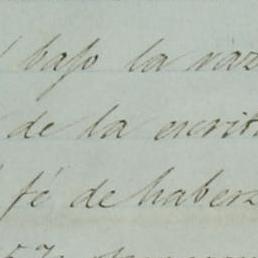 bajo la raz
de la escrit
fé de haberz